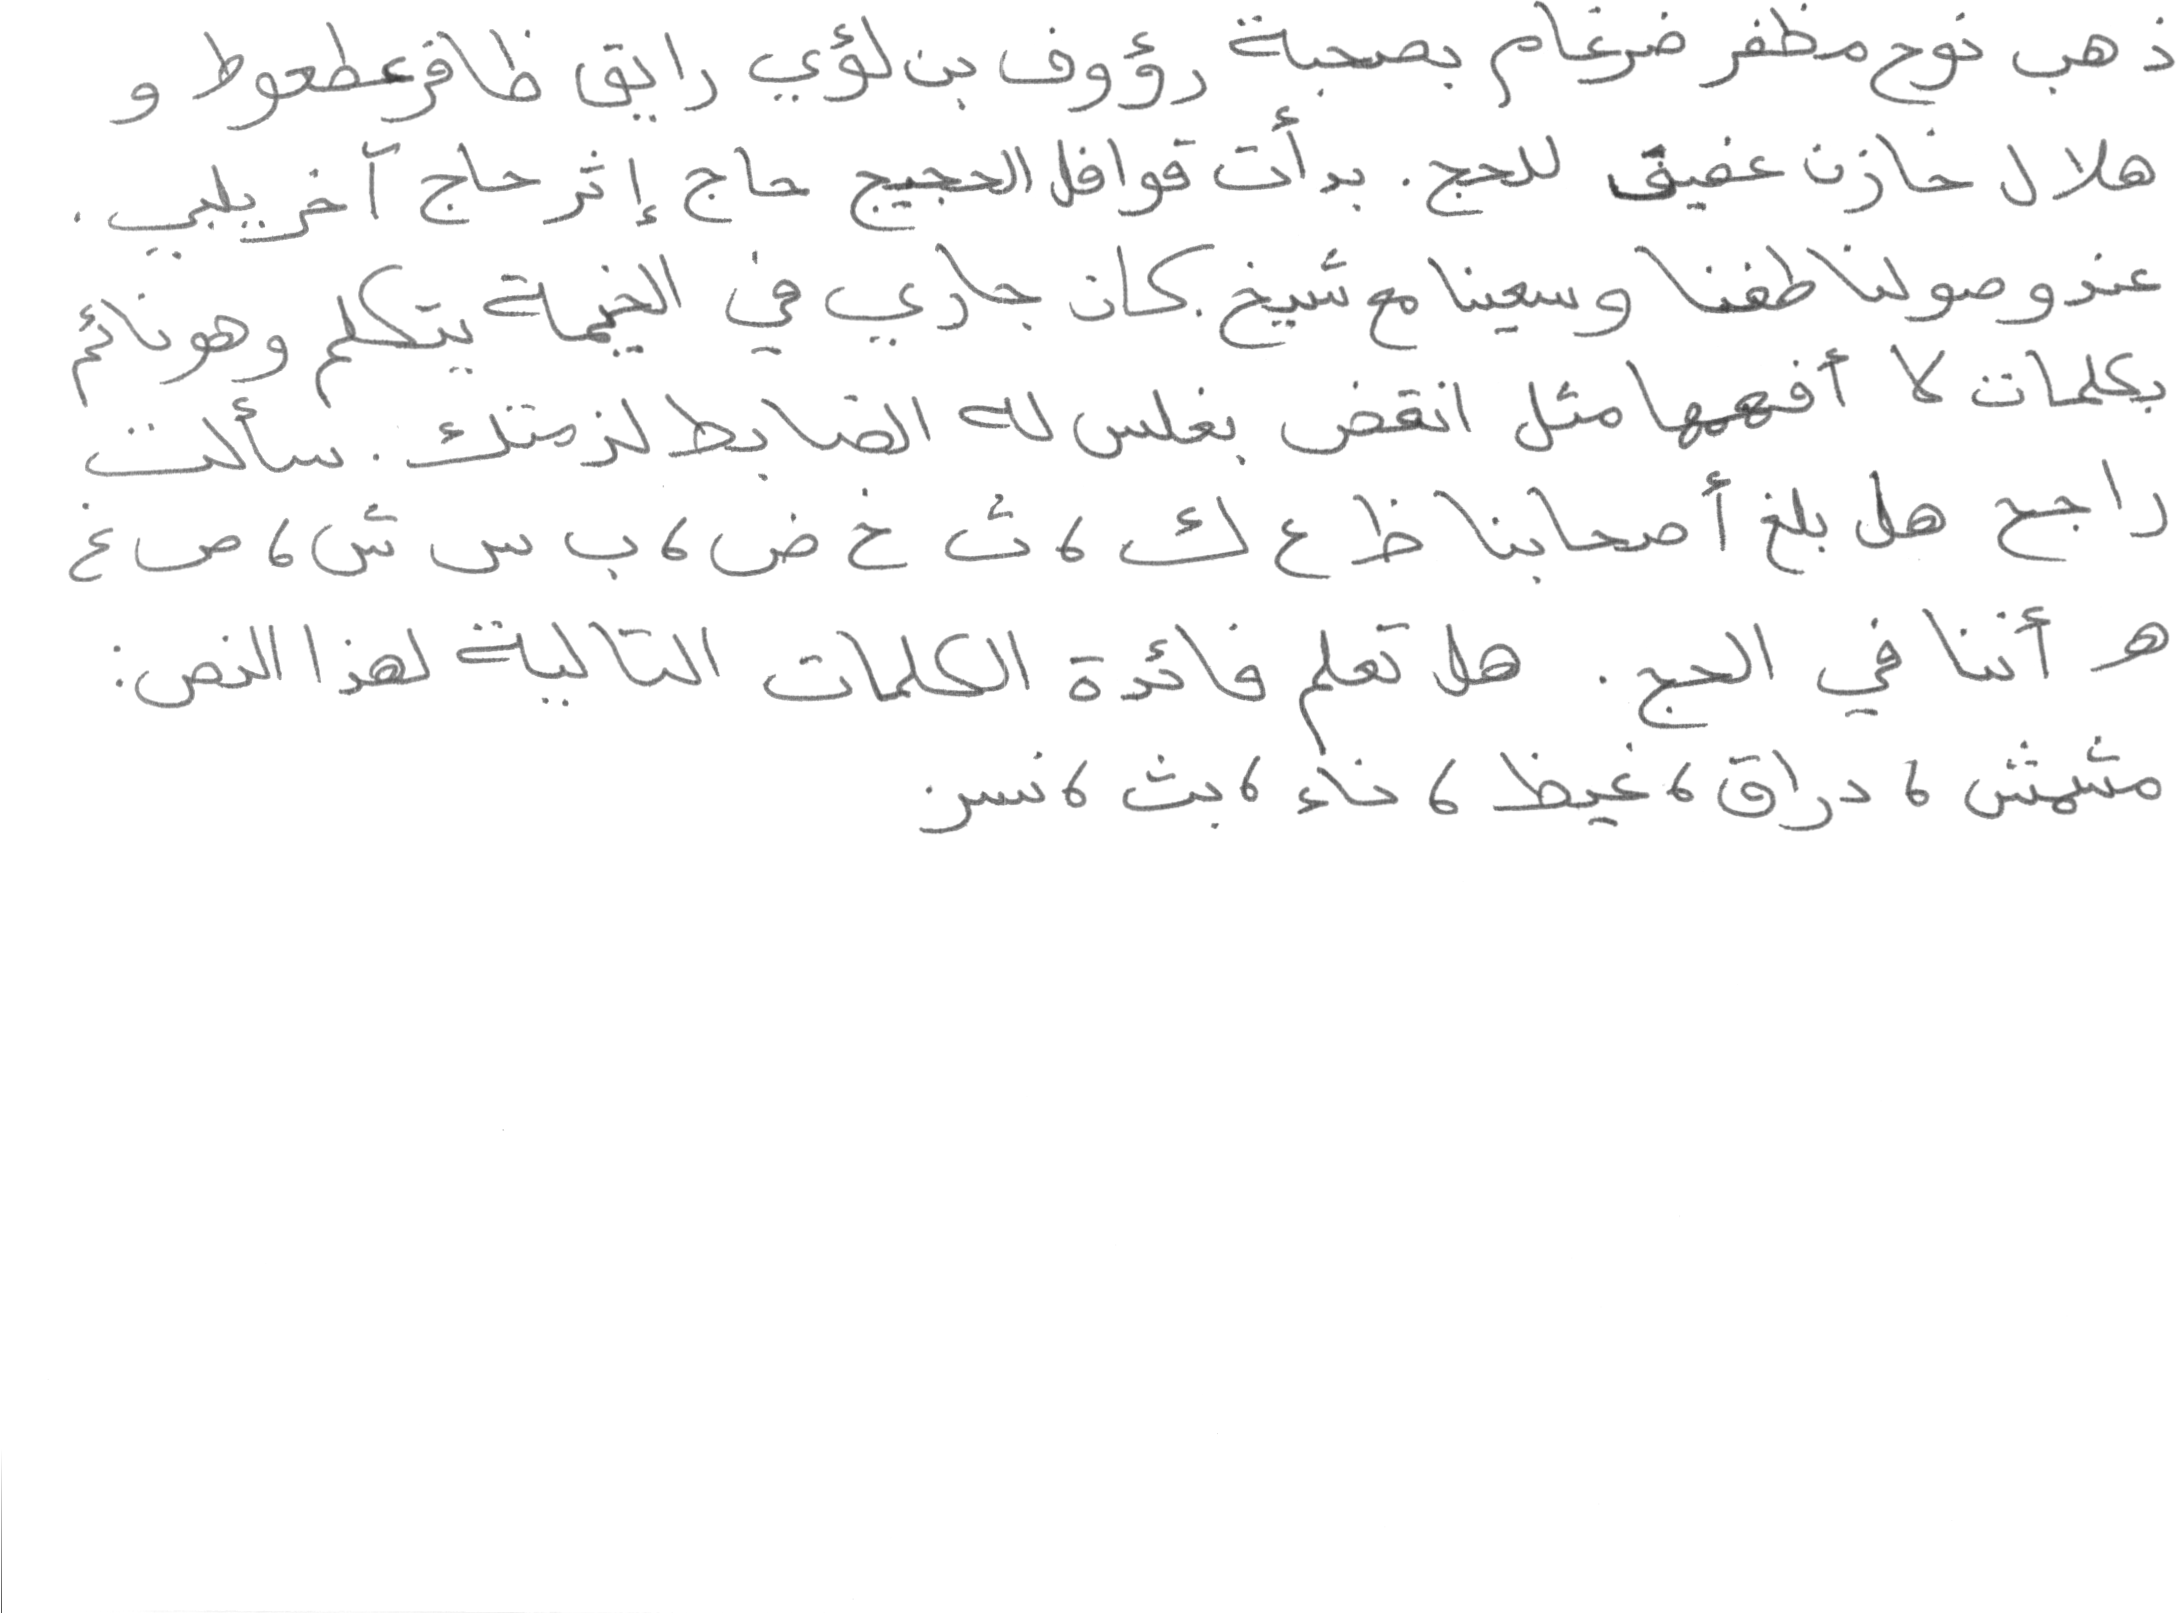 ذهب نوح مظفر ضرغام بصحبة رؤوف بن لؤي رايق ظافر عطعوط و
هلال خازن عفيق للحج. بدأت قوافل الحجيج حاج إثر حاج آخر يلبي.
عند وصولنا طفنا وسعينا مع شيخ. كان جاري في الخيمة يتكلم وهو نائم
بكلمات لا أفهمها مثل انقض بغلس له الضابط لزمتك. سألت
راجح هل بلغ أصحابنا ظ ع ك، ث خ ض، ب س ش، ص غ
هـ أننا في الحج. هل تعلم فائدة الكلمات التالية لهذا النص:
مشمش، دراق، غيظ، ناء، بث، نسر.